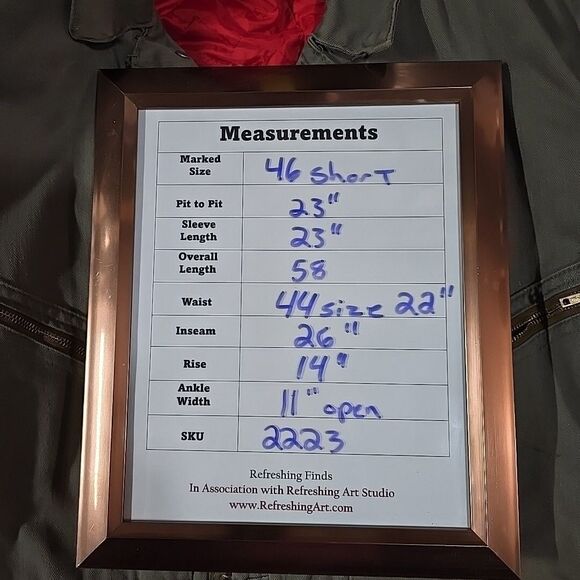 Measurements
Marked Size 46 short
Pit to Pit 23"
Sleeve Length 23"
Overall Length 58
Waist 44 size 22"
Inseam 26"
Rise 14"
Ankle Width 11" open
SKU 2223
Refreshing Finds
In Association with Refreshing Art Studio
www.RefreshingArt.com